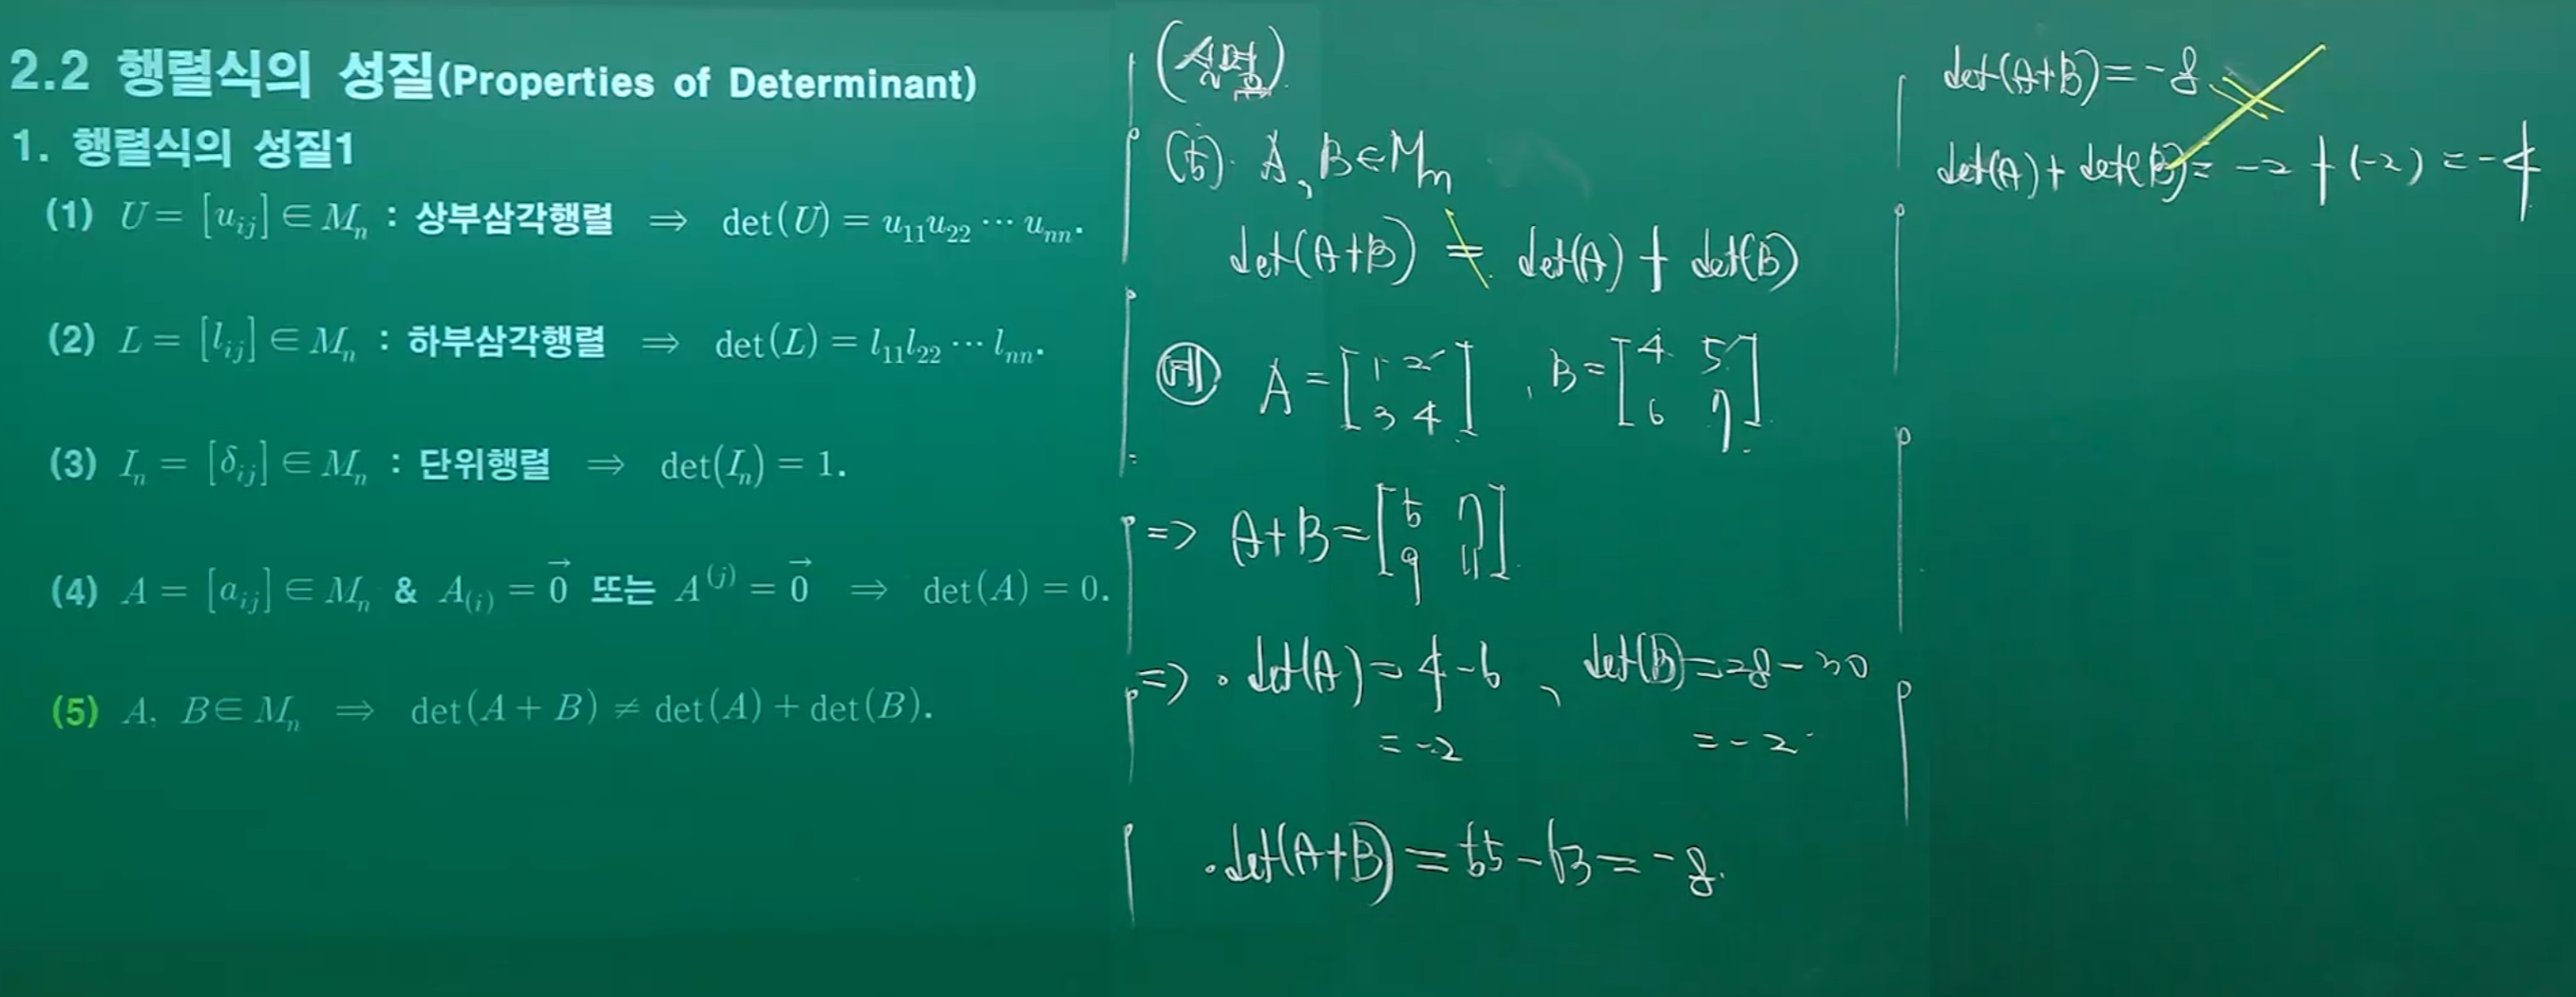 2.2 행렬식의 성질(Properties of Determinant)
1. 행렬식의 성질1
(1) U = [u_ij] ∈ M_n : 상부삼각행렬 ⇒ det(U) = u_11 u_22 ⋯ u_nn.
(2) L = [l_ij] ∈ M_n : 하부삼각행렬 ⇒ det(L) = l_11 l_22 ⋯ l_nn.
(3) I_n = [δ_ij] ∈ M_n : 단위행렬 ⇒ det(I_n) = 1.
(4) A = [a_ij] ∈ M_n & A_(i) = 0⃗ 또는 A^(j) = 0⃗ ⇒ det(A) = 0.
(5) A, B ∈ M_n ⇒ det(A + B) ≠ det(A) + det(B).
(5). A, B ∈ M_n
det(A+B) ≠ det(A) + det(B)
예 A = [1 2
3 4] , B = [4 5
6 7]
=> A+B = [5 7
9 11]
=> · det(A) = 4-6 , det(B) = 28-30
= -2 = -2
· det(A+B) = 55-63 = -8.
det(A+B) = -8
det(A) + det(B) = -2 + (-2) = -4